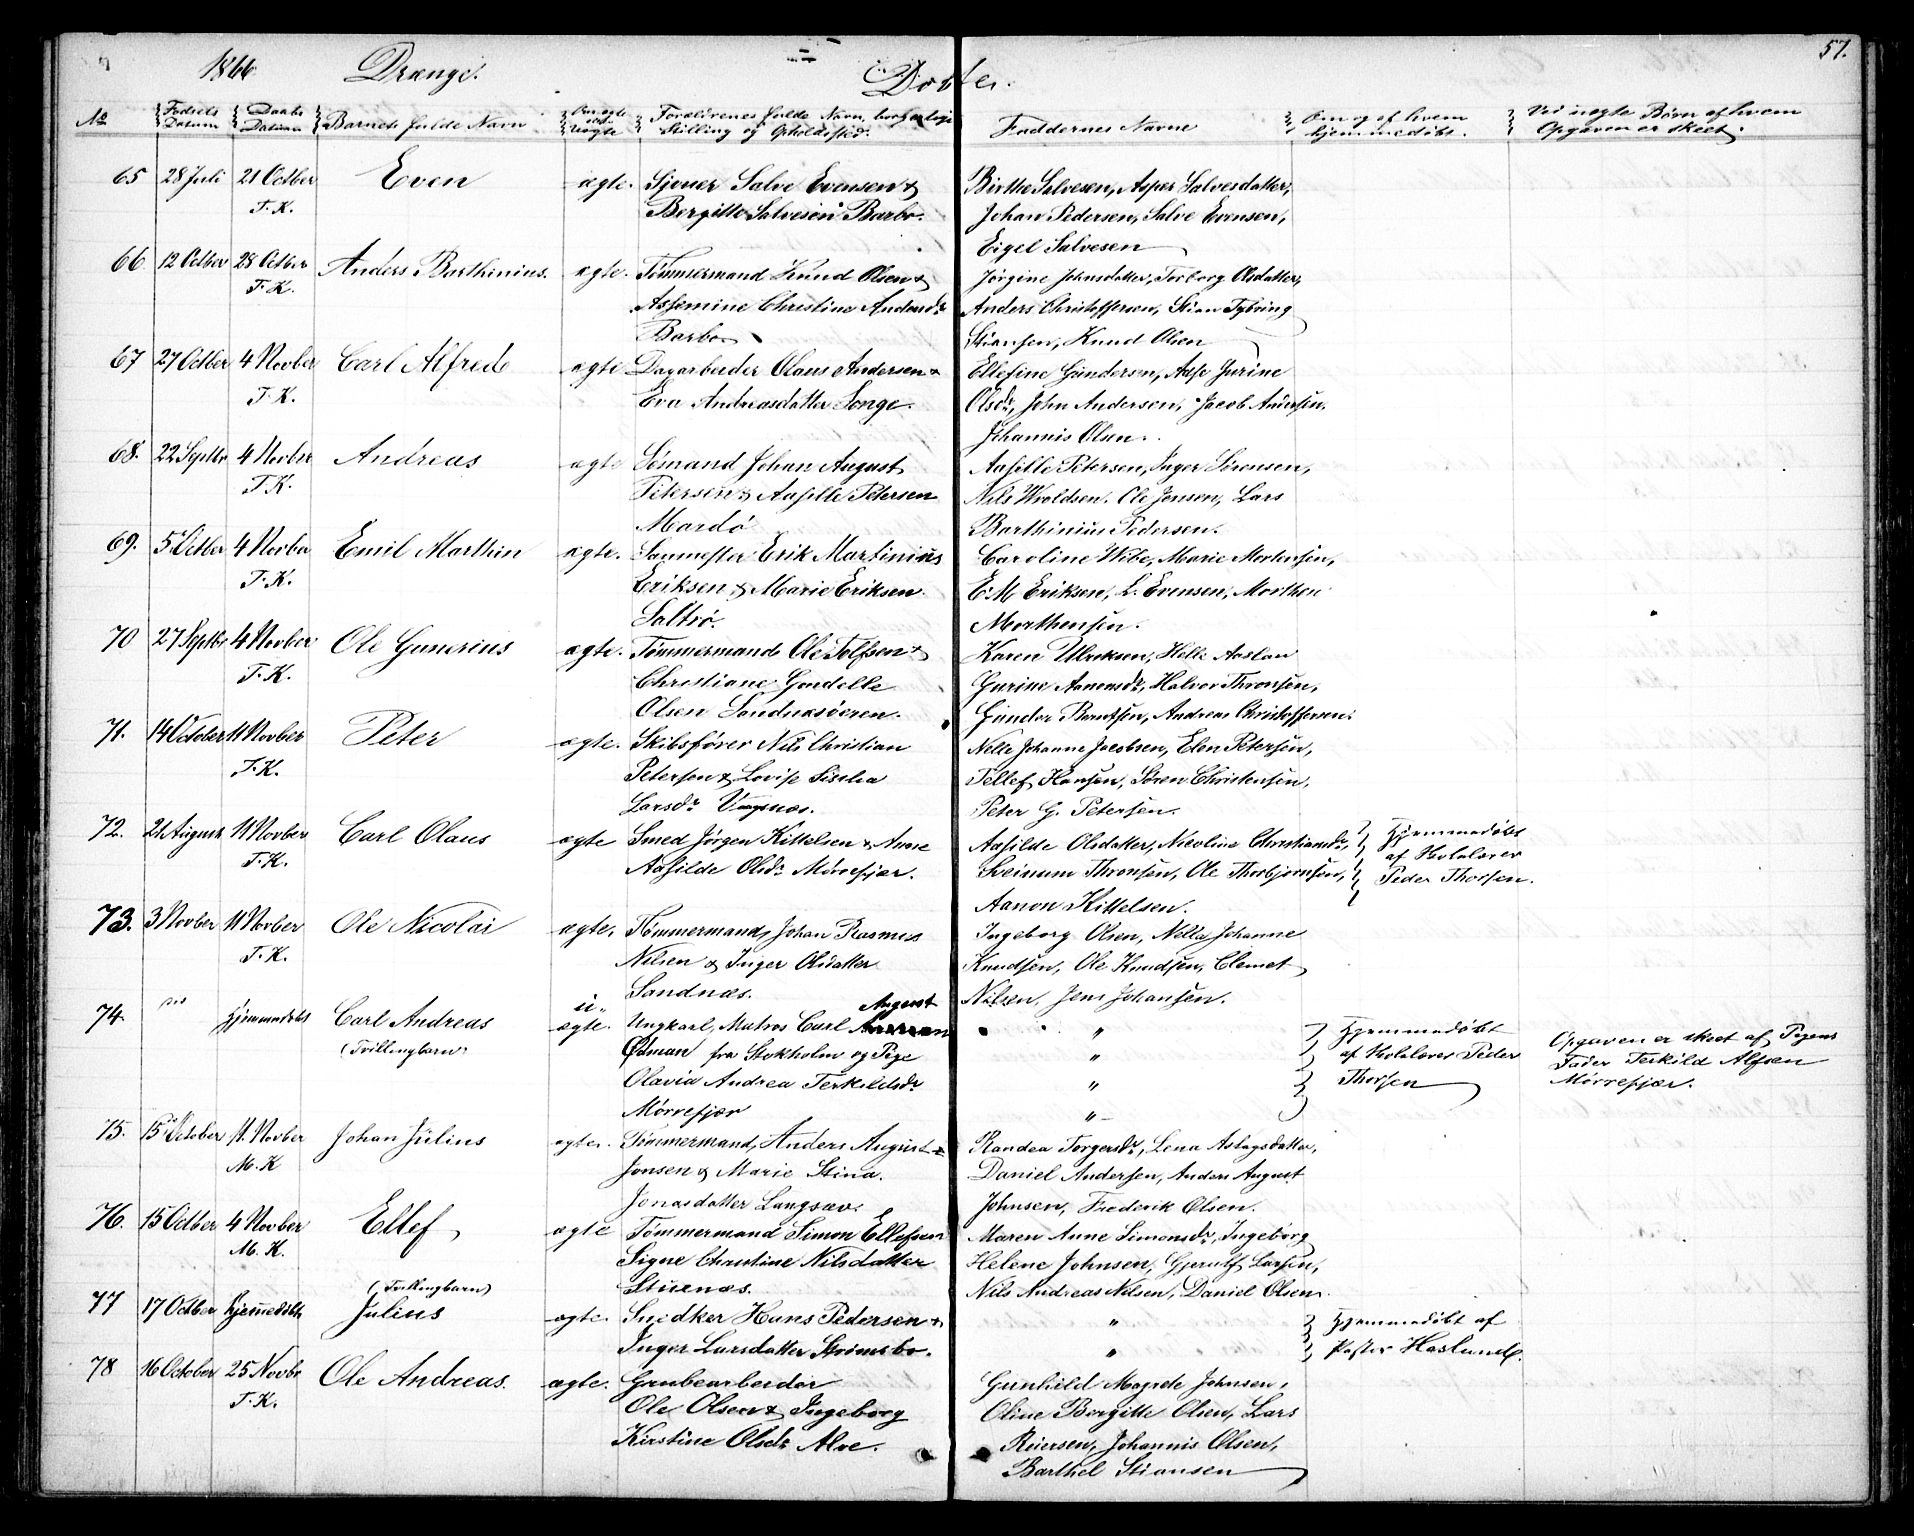 57.
1866 Drenge. Døbte.
No Fødsels Datum Daabs Datum Barnets fulde Navn Om ægte eller Uægte Forældrenes fulde Navn, borgerlige Stilling og Opholdssted. Faddernes Navne Om og af hvem hjemmedøbt. Ved uægte Børn af hvem Opgaven er skeet.
65 28 Juli 21 Octber Even ægte. Sjouer Salve Evensen & Birthe Salvesen, Asper Salvesdatter,
T. K. Bergitte Salvesen Barbo. Johan Pedersen, Salve Evensen,
Eigel Salvesen
66 12 Octber 28 Octber Anders Barthinius. ægte. Tømmermand Knud Olsen & Jørgine Johnsdatter, Torborg Olsdatter,
T. K. Assemine Christine Andersdr Anders Christoffersen, Stian Tybring
Barbo Stiansen, Knud Olsen
67 27 Octber 4 Novber Carl Alfred ægte Dagarbeider Olaus Andersen & Ellefine Gundersen, Aase Jurine
T. K. Eva Andreasdatter Songe. Olsdr, John Andersen, Jacob Andersen,
Johannis Olsen.
68. 22 Septbr 4 Novber Andreas ægte Sømand Johan August Aasille Petersen, Inger Sørensen,
T. K. Petersen & Aasille Petersen Nils Wroldsen, Ole Jensen, Lars
Mardø Barthinius Pedersen.
69. 5 Octber 4 Novbr Emil Marthin ægte. Sanmester Erik Martinius Caroline Wibe, Marie Mortensen,
T. K. Eriksen & Marie Eriksen E. M Eriksen, L. Evensen, Morthen
Saltrø. Morthensen.
70 27 Septbr 4 Novber Ole Gunerius ægte. Tømmermand Ole Tolfsen & Karen Ulriksen, Helle Aaslau
T. K. Christiane Gundelle Gurine Aanonsdr, Halvor Thronsen,
Olsen Sandnæsveren. Gunder Berntsen, Andreas Christoffersen.
71. 14 October 11 Novber Peter ægte. Skibsfører Nils Christian Nelle Johanne Jacobsen, Elen Petersen,
T. K. Petersen & Lovise Sissilia Tellef Hansen, Søren Christensen,
Larsdr Vragsnæs. Peter G. Petersen.
72. 21 August 11 Novber Carl Olaus ægte Smed Jørgen Kittelsen & Anne Aasilde Olsdatter, Nicoline Christiansdr, Hjemmedøbt
T. K. Aasilde Olsdr Mørrefjær. Sveinum Thronsen, Ole Thorbjørnsen, af Skolelærer
Aanon Kittelsen. Peder Thorsen.
73. 3 Novber 11 Novber Ole Nicolai ægte. Tømmermand Johan Rasmus Ingeborg Olsen, Nella Johanne
T. K. Nilsen & Inger Olsdatter Knudsen, Ole Knudsen, Clemet
Sandnæs. Nilsen, Jens Johansen.
74. hjemmedøbt Carl Andreas u-ægte. Ungkarl, Matros Carl August " Hjemmedøbt Opgaven er skeet af Pigens
(Tvillingbarn) Ødman fra Stokholm og Pige " af Skolelærer Peder Fader Terkild Alfsen
Olavia Andrea Terkildsdr " Thorsen Mørrefjær.
Mørrefjær "
75. 15 October 11. Novber Johan Julius ægte. Tømmermand, Anders August Randea Torgersdr, Lena Aslagsdatter,
M. K Jonsen & Marie Stina Daniel Andersen, Anders August
Jonasdatter Langsæv. Johnsen, Frederik Olsen.
76. 15 Octber 4 Novber Ellef ægte Tømmermand Simon Ellefsen Maren Anne Simonsdr, Ingeborg
M. K. Signe Christine Nilsdatter Helene Johnsen, Gjerulf Larsen,
Stuenæs. Nils Andreas Nilsen, Daniel Olsen.
(Tvillingbarn)
77 17 Octber hjemmedøbt Julius ægte. Snedker Hans Pedersen & " Hjemmedøbt af
Inger Larsdatter Strømsbo. " Pastor Haslund.
78 16 October 25 Novbr Ole Andreas. ægte. Grubearbeider Gunhild Margrete Johnsen,
T. K. Ole Olsen & Ingeborg Oline Bergitte Olsen, Lars
Kirstine Olsdr Alve. Reiersen, Johannis Olsen,
Barthel Stiansen